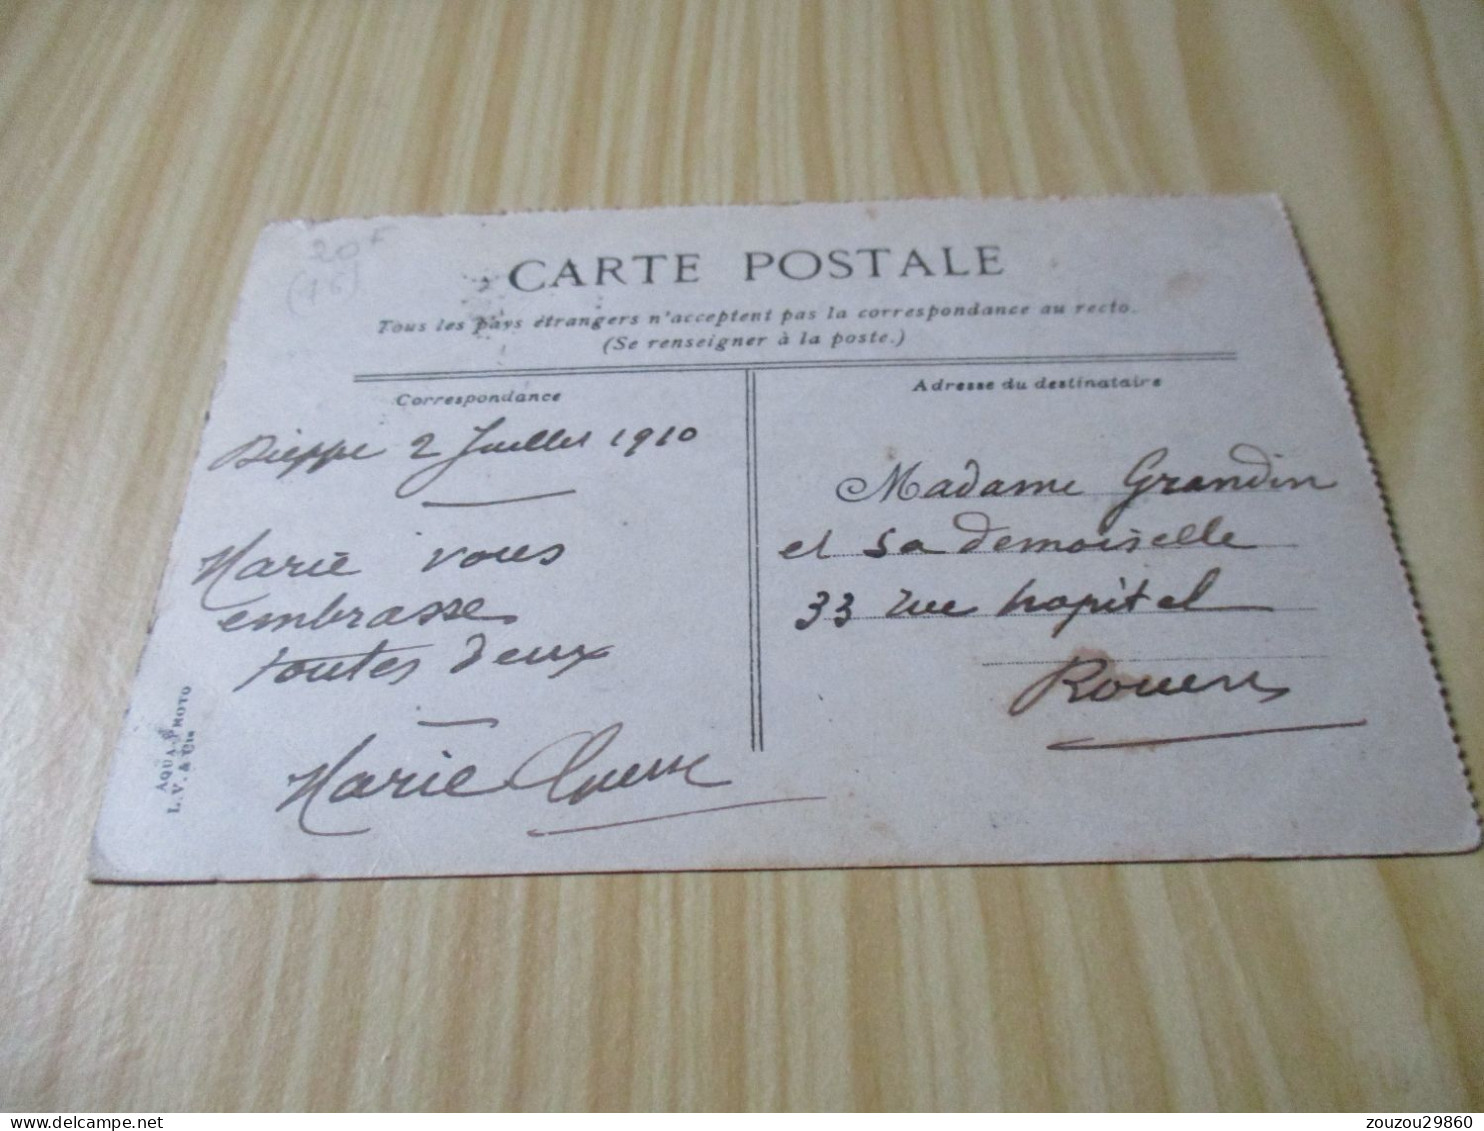 20F
(76)
CARTE POSTALE
Tous les pays étrangers n'acceptent pas la correspondance au recto.
(Se renseigner à la poste.)
Correspondance
Adresse du destinataire
Dieppe 2 Juillet 1910
Marie vous
embrasse
toutes deux
Marie
Madame Grandin
et sa demoiselle
33 rue hopital
Rouen
AQUA-PHOTO
L.V. & Cie
zouzou29860